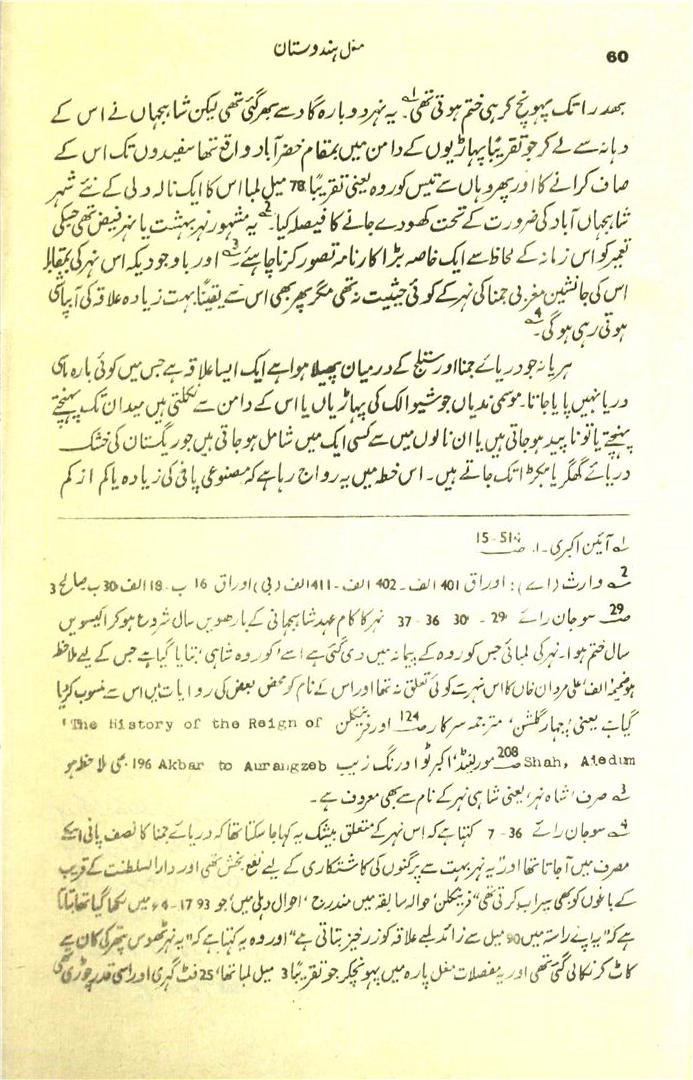 مغل ہندوستان
60
بھدرا تک پہونچ کر ہی ختم ہوتی تھی۔1 یہ نہر دوبارہ گاد سے بھر گئی تھی لیکن شاہجہاں نے اس کے
دہانہ سے لے کر جو تقریباً پہاڑیوں کے دامن میں بمقام خضر آباد واقع تھا سفیدوں تک اس کے
صاف کرانے کا اور پھر وہاں سے تیس کوروہ یعنی تقریباً 78 میل لمبا اس کا ایک نالہ دلی کے نئے شہر
شاہجہاں آباد کی ضرورت کے تحت کھودے جانے کا فیصلہ کیا۔2 یہ مشہور نہر بہشت یا نہر فیض تھی جسکی
تعمیر کو اس زمانہ کے لحاظ سے ایک خاصہ بڑا کارنامہ تصور کرنا چاہئے۔3 اور باوجودیکہ اس نہر کی بمقابلہ
اس کی جانشین مغربی جمنا کی نہر کے کوئی حیثیت نہ تھی مگر پھر بھی اس سے یقیناً بہت زیادہ علاقہ کی آبپاشی
ہوتی رہی ہوگی۔4
ہریانہ جو دریائے جمنا اور ستلج کے درمیان پھیلا ہوا ہے ایک ایسا علاقہ ہے جس میں کوئی بارہ ماسی
دریا نہیں پایا جاتا۔ موسمی ندیاں جو شیوالک کی پہاڑیاں یا اس کے دامن سے نکلتی ہیں میدان تک پہنچتے
پہنچتے یا تو ناپید ہو جاتی ہیں یا ان نالوں میں سے کسی ایک میں شامل ہو جاتی ہیں جو ریگستان کی خشک
دریائے گھگر یا مکڑا تک جاتے ہیں۔ اس خطہ میں یہ رواج رہا ہے کہ مصنوعی پانی کی زیادہ یا کم از کم
1 آئین اکبری۔ ا۔ ص 514-15
2 وارث (اے): اوراق 401 الف۔ 402 الف۔ 411 الف (بی) اوراق 16 ب۔ 18 الف 30 ب صالح 3
ص 29 سوجان رائے 29۔ 30، 36-37 نہر کا کام عہد شاہجہانی کے بارھویں سال شروع ہو کر اکیسویں
سال ختم ہوا۔ نہر کی لمبائی جس کوروہ کے پیمانہ میں دی گئی ہے اسے 'کوروہ شاہی' بتایا گیا ہے جس کے لیے ملاحظہ
ہو ضمیمہ الف، علی مردان خاں کا اس نہر سے کوئی تعلق نہ تھا اور اس کے نام کو محض بعض کی روایات میں اس سے منسوب کر دیا
گیا ہے یعنی 'چہار گلشن' مترجمہ سرکار ص 124 اور فرینکلن The History of the Reign of'
Shah, Aledum ص 208 مورلینڈ، اکبر ٹو اورنگ زیب Akbar to Aurangzeb 196 بھی ملاحظہ ہو
3 صرف 'شاہ نہر' یعنی شاہی نہر کے نام سے بھی معروف ہے۔
4 سوجان رائے 36-7 کہتا ہے کہ اس نہر کے متعلق بیشک یہ کہا جا سکتا تھا کہ دریائے جمنا کا نصف پانی اسکے
مصرف میں آ جاتا تھا اور "یہ نہر بہت سے پرگنوں کی کاشتکاری کے لیے نفع بخش تھی اور دارالسلطنت کے قریب
کے باغوں کو بھی سیراب کرتی تھی" فرینکلن، حوالہ سابقہ میں مندرج 'احوال دہلی' میں جو 1793-4ء میں لکھا گیا تھا بتاتا
ہے کہ "یہ اپنے راستہ میں 90 میل سے زائد لمبے علاقہ کو زرخیز بناتی ہے" اور وہ یہ کہتا ہے کہ "یہ نہر ٹھوس پتھر کی کان سے
کاٹ کر نکالی گئی تھی اور یہ مفصلات مغل پارہ میں پہونچکر جو تقریباً 3 میل لمبا تھا، 25 فٹ گہری اور اسی قدر چوڑی تھی